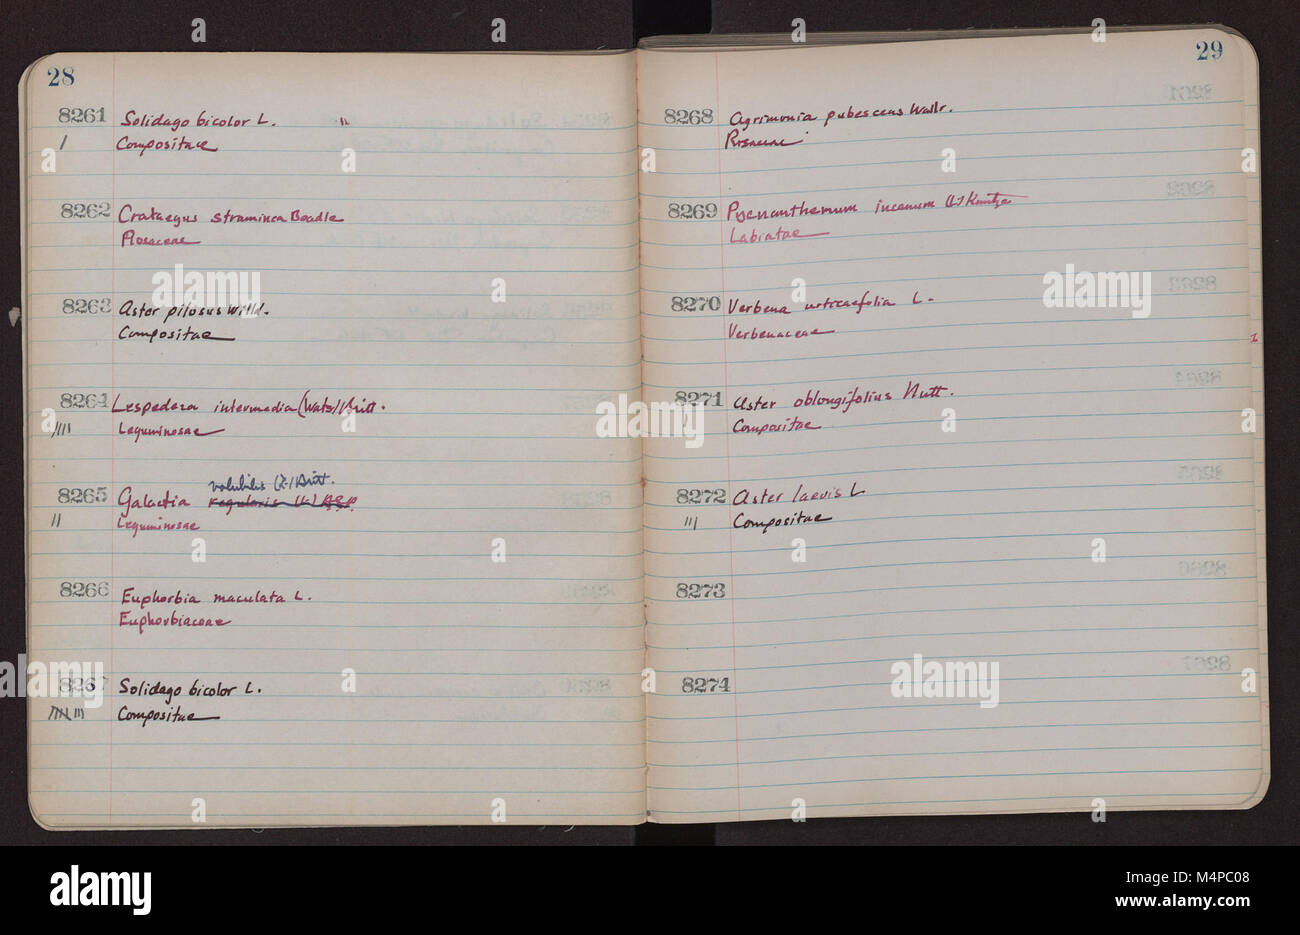 28
8261 Solidago bicolor L. "
Compositae
8262 Crataegus straminea Beadle
Rosaceae
8263 Aster pilosus Willd.
Compositae
8264 Lespedeza intermedia (Wats) Britt.
Leguminosae
volubilis (L.) Britt.
8265 Galactia regularis (L) BSP
Leguminosae
8266 Euphorbia maculata L.
Euphorbiaceae
8267 Solidago bicolor L.
Compositae
29
8268 Agrimonia pubescens Wallr.
Rosaceae
8269 Pycnanthemum incanum (L) Kuntze
Labiatae
8270 Verbena urticaefolia L.
Verbenaceae
8271 Aster oblongifolius Nutt.
Compositae
8272 Aster laevis L
Compositae
8273
8274
alamy
Image ID: M4PC08
www.alamy.com